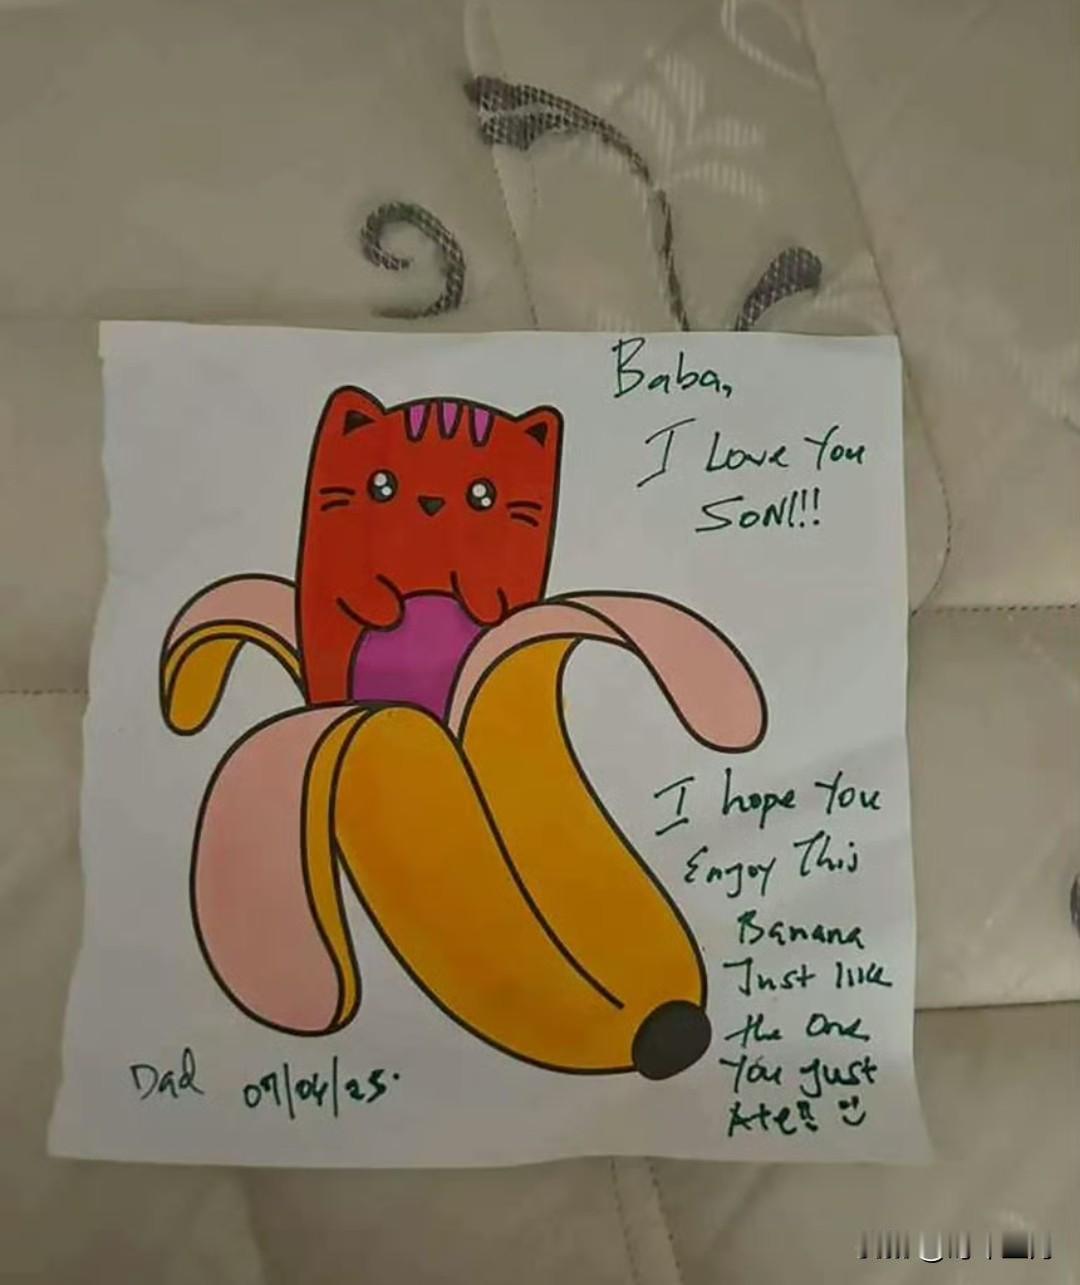 Baba,
I Love You
SON!!!
I hope You
Enjoy This
Banana
Just like
the One
You just
Ate!! :)
Dad 07/04/25.